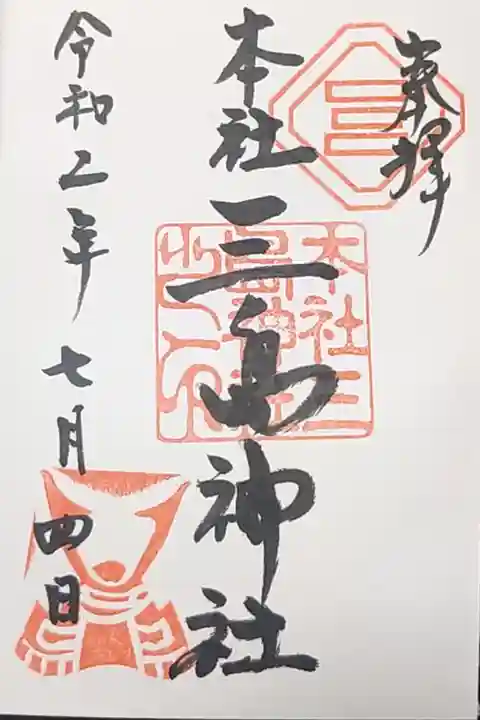 奉拝
本社三島神社
本社三島神社之印
令和二年七月四日